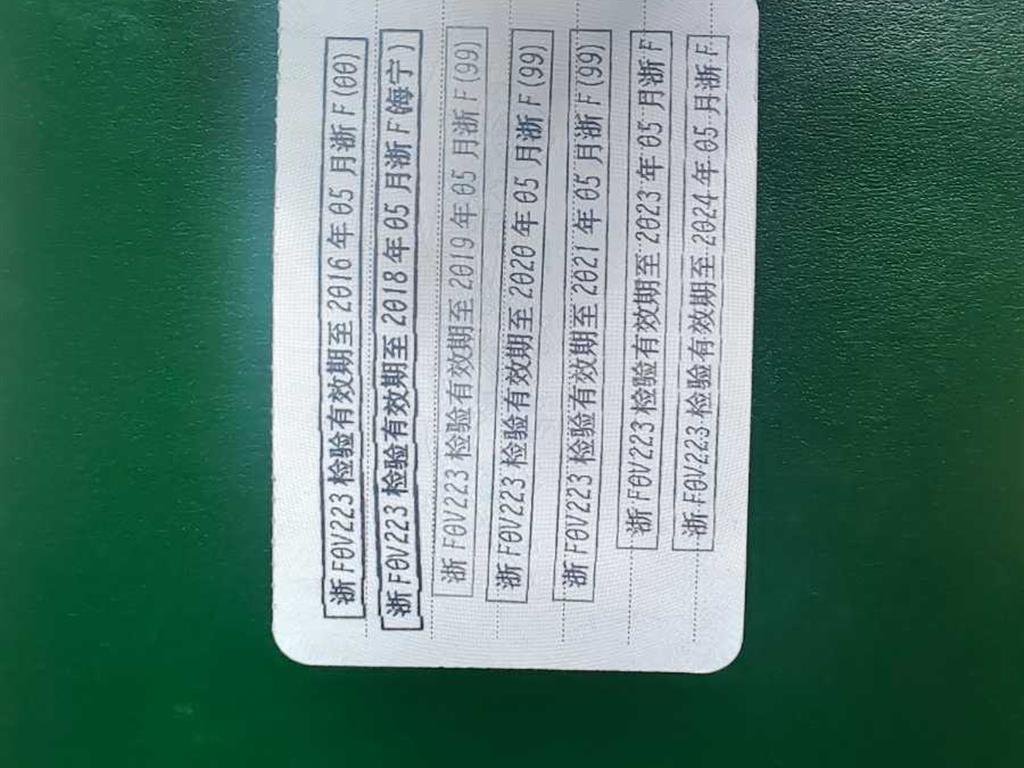 浙F0V223检验有效期至2016年05月浙F(00)
浙F0V223检验有效期至2018年05月浙F(海宁)
浙F0V223检验有效期至2019年05月浙F(99)
浙F0V223检验有效期至2020年05月浙F(99)
浙F0V223检验有效期至2021年05月浙F(99)
浙F0V223检验有效期至2023年05月浙F
浙F0V223检验有效期至2024年05月浙F